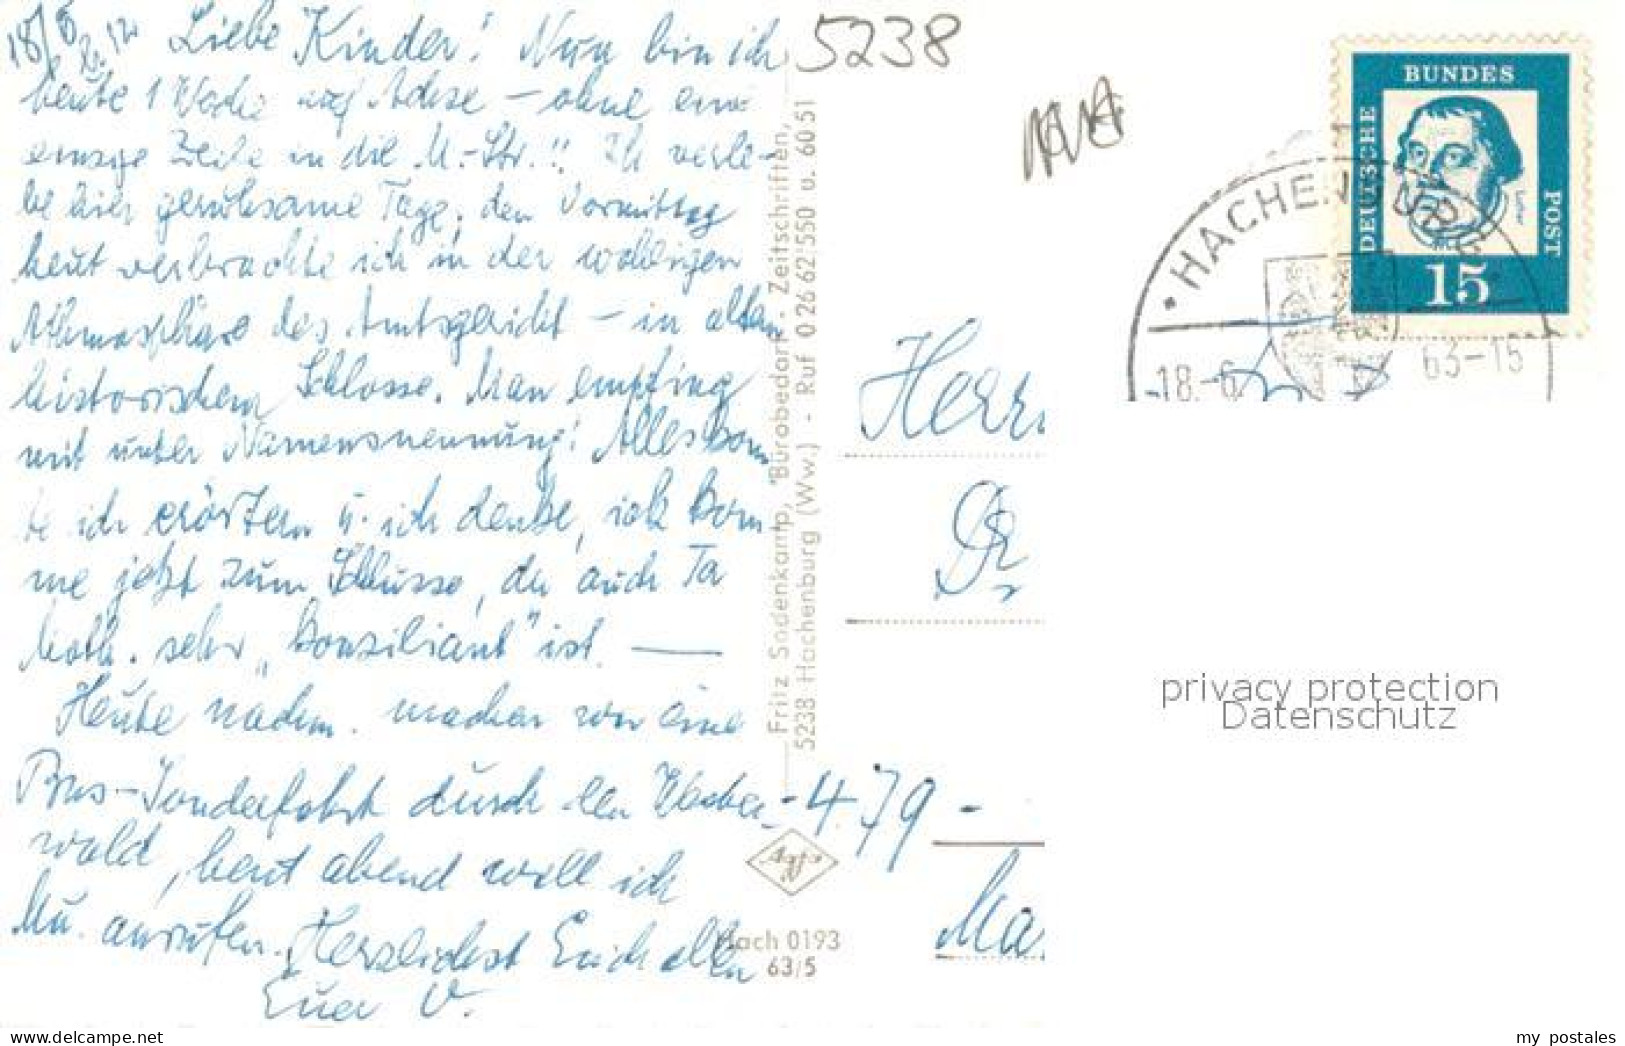 18/6
Liebe Kinder! Nun bin ich
heute 1 Woche auf Achse – ohne eine
einzige Zeile in die M.-Str.!! Ich verle-
be hier geruhsame Tage, den Vormittag
heut verbrachte ich in der wohligen
Athmosphäre des Amtsgericht – in altem
historischem Schlosse. Man empfing
mit unter Namensnennung! Alles konn
te ich erörtern u. ich denke, ich kom
me jetzt zum Schlusse, da auch
sehr „konziliant" ist. —
Heute nachm. machen wir eine
Bus-Sonderfahrt durch den Wester-
wald, heut abend will ich
Mu. anrufen. Herzlichst Euch allen
Euer V.
5238
Fritz Sadenkamp, Bürobedarf - Zeitschriften,
5238 Hachenburg (Ww.) - Ruf 0 26 62 550 u. 60 51
Agfa
Hach 0193
63/5
BUNDES
DEUTSCHE
POST
Luther
15
HACHENBURG
-18.-6. 63-15
Herrn
Dr
- 4.79 -
Ma
privacy protection
Datenschutz
www.delcampe.net
my_postales